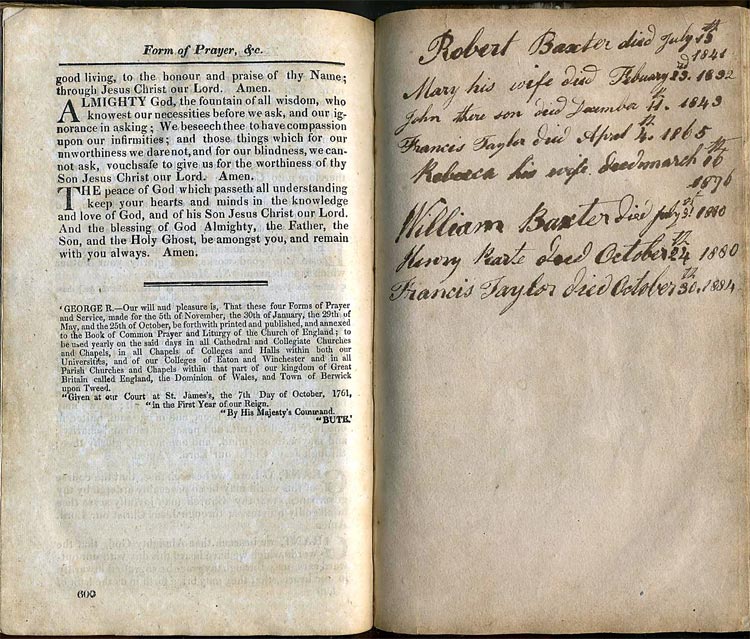 Form of Prayer, &c.
good living, to the honour and praise of thy Name;
through Jesus Christ our Lord. Amen.
ALMIGHTY God, the fountain of all wisdom, who
knowest our necessities before we ask, and our ig-
norance in asking; We beseech thee to have compassion
upon our infirmities; and those things which for our
unworthiness we dare not, and for our blindness, we can-
not ask, vouchsafe to give us for the worthiness of thy
Son Jesus Christ our Lord. Amen.
THE peace of God which passeth all understanding
keep your hearts and minds in the knowledge
and love of God, and of his Son Jesus Christ our Lord.
And the blessing of God Almighty, the Father, the
Son, and the Holy Ghost, be amongst you, and remain
with you always. Amen.
'GEORGE R.—Our will and pleasure is, That these four Forms of Prayer
and Service, made for the 5th of November, the 30th of January, the 29th of
May, and the 25th of October, be forthwith printed and published, and annexed
to the Book of Common Prayer and Liturgy of the Church of England; to
be used yearly on the said days in all Cathedral and Collegiate Churches
and Chapels, in all Chapels of Colleges and Halls within both our
Universities, and of our Colleges of Eaton and Winchester and in all
Parish Churches and Chapels within that part of our kingdom of Great
Britain called England, the Dominion of Wales, and Town of Berwick
upon Tweed.
"Given at our Court at St. James's, the 7th Day of October, 1761,
"in the First Year of our Reign.
"By His Majesty's Command.
"BUTE.'
600
Robert Baxter died July 13th
1841
Mary his wife died Febuary 23rd. 1832
John there son died December 11th. 1843
Frances Taylor died April 4th. 1865
Rebecca his wife deed march 16th
1876
William Baxter died July 31st 1880
Henry deed October 24th 1880
Francis Taylor died October 30th. 1884.